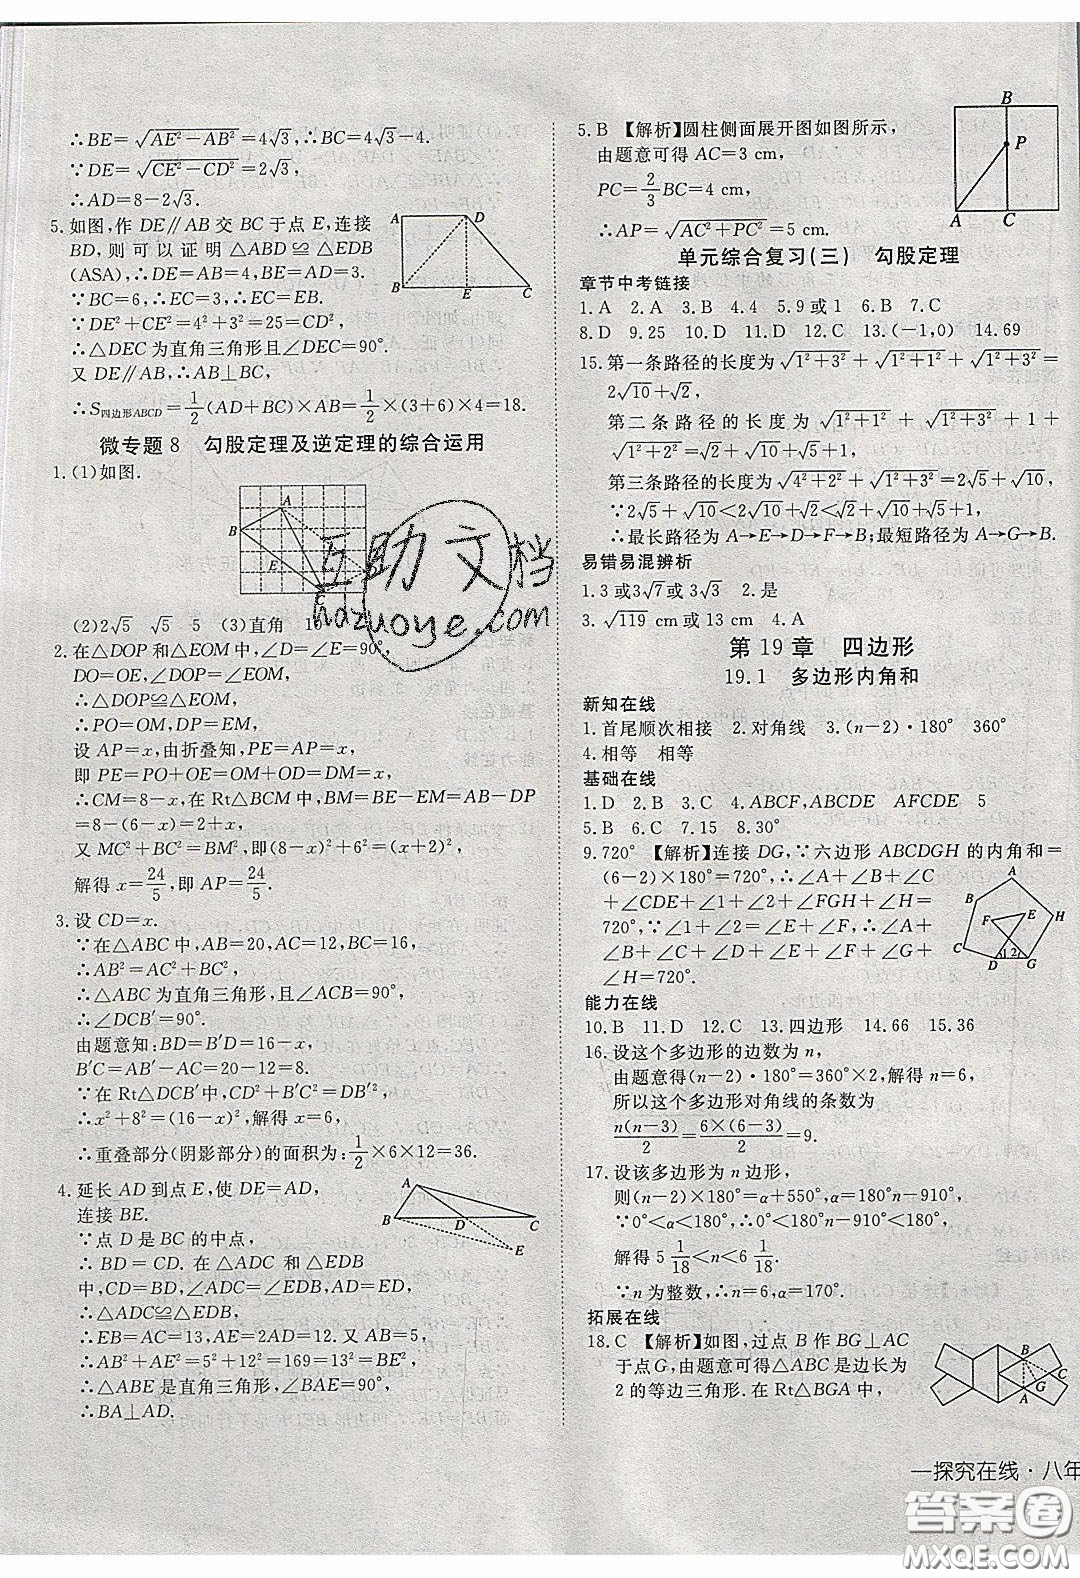 ∴BE=√(AE²-AB²)=4√3,∴BC=4√3-4.
∵DE=√(CE²-CD²)=2√3,
∴AD=8-2√3.
5.如图,作 DE∥AB 交 BC 于点 E,连接
BD,则可以证明△ABD≌△EDB
(ASA),∴DE=AB=4,BE=AD=3.
∵BC=6,∴EC=EB=EC.
∵DE²+CE²=4²+3²=25=CD²,
∴△DEC为直角三角形且∠DEC=90°.
又DE∥AB,∴AB⊥BC,
∴S四边形ABCD=1/2(AD+BC)×AB=1/2×(3+6)×4=18.
A D B E C
微专题8 勾股定理及逆定理的综合运用
1.(1)如图.
A B E C
(2)2√5 √5 5 (3)直角 10
2.在△DOP和△EOM中,∠D=∠E=90°,
DO=OE,∠DOP=∠EOM,
∴△DOP≌△EOM,
∴PO=OM,DP=EM,
设AP=x,由折叠知,PE=AP=x,
即PE=PO+OE=OM+OD=DM=x,
∴CM=8-x,在Rt△BCM中,BM=BE-EM=AB-DP
=8-(6-x)=2+x,
又MC²+BC²=BM²,即(8-x)²+6²=(x+2)²,
解得x=24/5,即AP=24/5.
3.设CD=x.
∵在△ABC中,AB=20,AC=12,BC=16,
∴AB²=AC²+BC²,
∴△ABC为直角三角形,且∠ACB=90°,
∴∠DCB′=90°.
由题意知:BD=B′D=16-x,
B′C=AB′-AC=20-12=8.
∵在Rt△DCB′中,CD²+B′C²=DB′²,
∴x²+8²=(16-x)²,解得x=6.
∴重叠部分(阴影部分)的面积为:1/2×6×12=36.
4.延长AD到点E,使DE=AD,
连接BE.
∵点D是BC的中点,
∴BD=CD.在△ADC和△EDB
中,CD=BD,∠ADC=∠EDB,AD=ED,
∴△ADC≌△EDB,
∴EB=AC=13,AE=2AD=12.又AB=5,
∴AB²+AE²=5²+12²=169=13²=BE²,
∴△ABE是直角三角形,∠BAE=90°.
∴BA⊥AD.
A B D C E
5.B 【解析】圆柱侧面展开图如图所示,
由题意可得AC=3 cm,
PC=2/3BC=4 cm,
∴AP=√(AC²+PC²)=5 cm.
B P A C
单元综合复习(三) 勾股定理
章节中考链接
1.A 2.A 3.B 4.4 5.9或1 6.B 7.C
8.D 9.25 10.D 11.D 12.C 13.(-1,0) 14.69
15.第一条路径的长度为√(1²+3²)+√(1²+1²)+√(1²+3²)=
2√10+√2,
第二条路径的长度为√(1²+1²)+√(1²+3²)+1
+√(1²+2²)=√2+√10+1+√5,
第三条路径的长度为√(4²+2²)+√(1²+3²)=2√5+√10,
∵2√5+√10<2√10+√2<√2+√10+√5+1,
∴最长路径为A→E→D→F→B;最短路径为A→G→B.
易错易混辨析
1.3或3√7或3√3 2.是
3.√119 cm或13 cm 4.A
第19章 四边形
19.1 多边形内角和
新知在线
1.首尾顺次相接 2.对角线 3.(n-2)·180° 360°
4.相等 相等
基础在线
1.D 2.B 3.C 4.ABCF,ABCDE AFCDE 5
5.B 6.C 7.15 8.30°
9.720° 【解析】连接DG,∵六边形ABCDGH的内角和=
(6-2)×180°=720°,∴∠A+∠B+∠C
+∠CDE+∠1+∠2+∠FGH+∠H=
720°,∵∠1+∠2=∠E+∠F,∴∠A
+∠B+∠C+∠D+∠E+∠F+∠G
+∠H=720°.
A B C D G H E F 1 2
能力在线
10.B 11.D 12.C 13.四边形 14.66 15.36
16.设这个多边形的边数为n,
由题意得(n-2)·180°=360°×2,解得n=6,
所以这个多边形对角线的条数为
n(n-3)/2=6×(6-3)/2=9.
17.设该多边形为n边形,
则(n-2)×180°=α+550°,α=180°n-910°,
∵0°<α<180°,∴0°<180°n-910°<180°,
解得5 1/18<n<6 1/18.
∵n为整数,∴n=6,α=170°.
拓展在线
18.C 【解析】如图,过点B作BG⊥AC
于点G,由题意可得△ABC是边长为
2的等边三角形.在Rt△BGA中,
B C G A
一探究在线·八年
互助文档
hazuoye.com
答案圈
MXQE.COM